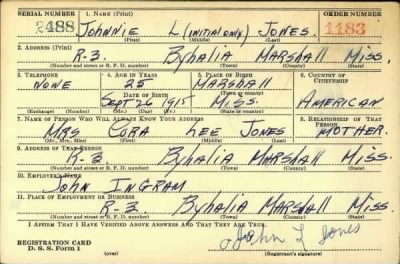 SERIAL NUMBER 1. NAME (Print) ORDER NUMBER
2488 JOHNNIE L (INITIAL ONLY) JONES. 1183
(First) (Middle) (Last)
2. ADDRESS (Print)
R-3. BYHALIA MARSHALL MISS.
(Number and street or R. F. D. number) (Town) (County) (State)
3. TELEPHONE 4. AGE IN YEARS 5. PLACE OF BIRTH 6. COUNTRY OF CITIZENSHIP
NONE 25 MARSHALL
DATE OF BIRTH (Town or county)
SEPT 26 1915 MISS. AMERICAN
(Exchange) (Number) (Mo.) (Day) (Yr.) (State or country)
7. NAME OF PERSON WHO WILL ALWAYS KNOW YOUR ADDRESS 8. RELATIONSHIP OF THAT PERSON
MRS CORA LEE JONES MOTHER.
(Mr., Mrs., Miss) (First) (Middle) (Last)
9. ADDRESS OF THAT PERSON
R-3. BYHALIA MARSHALL MISS.
(Number and street or R. F. D. number) (Town) (County) (State)
10. EMPLOYER'S NAME
JOHN INGRAM
11. PLACE OF EMPLOYMENT OR BUSINESS
R-3. BYHALIA MARSHALL MISS.
(Number and street or R. F. D. number) (Town) (County) (State)
I AFFIRM THAT I HAVE VERIFIED ABOVE ANSWERS AND THAT THEY ARE TRUE.
REGISTRATION CARD John L Jones
D. S. S. Form 1 (over) (Registrant's signature)